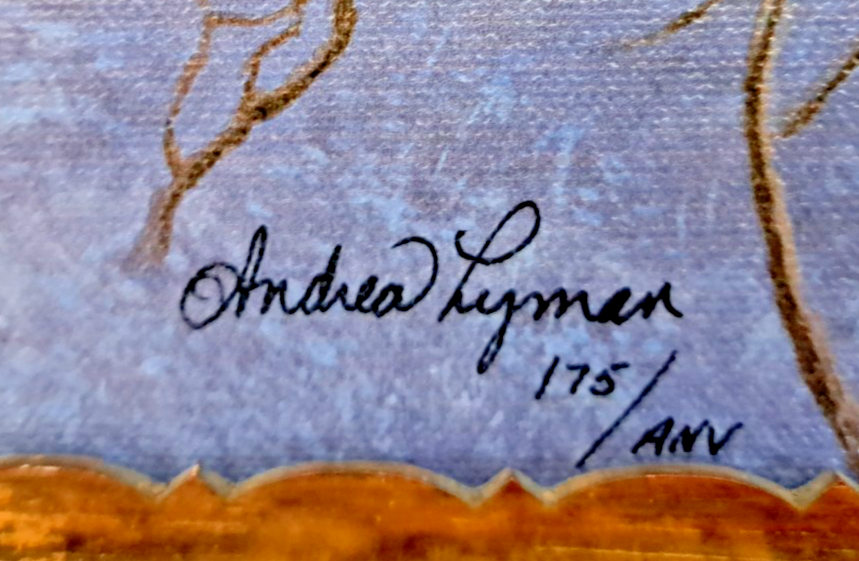 Andrea Lyman
175/ANV